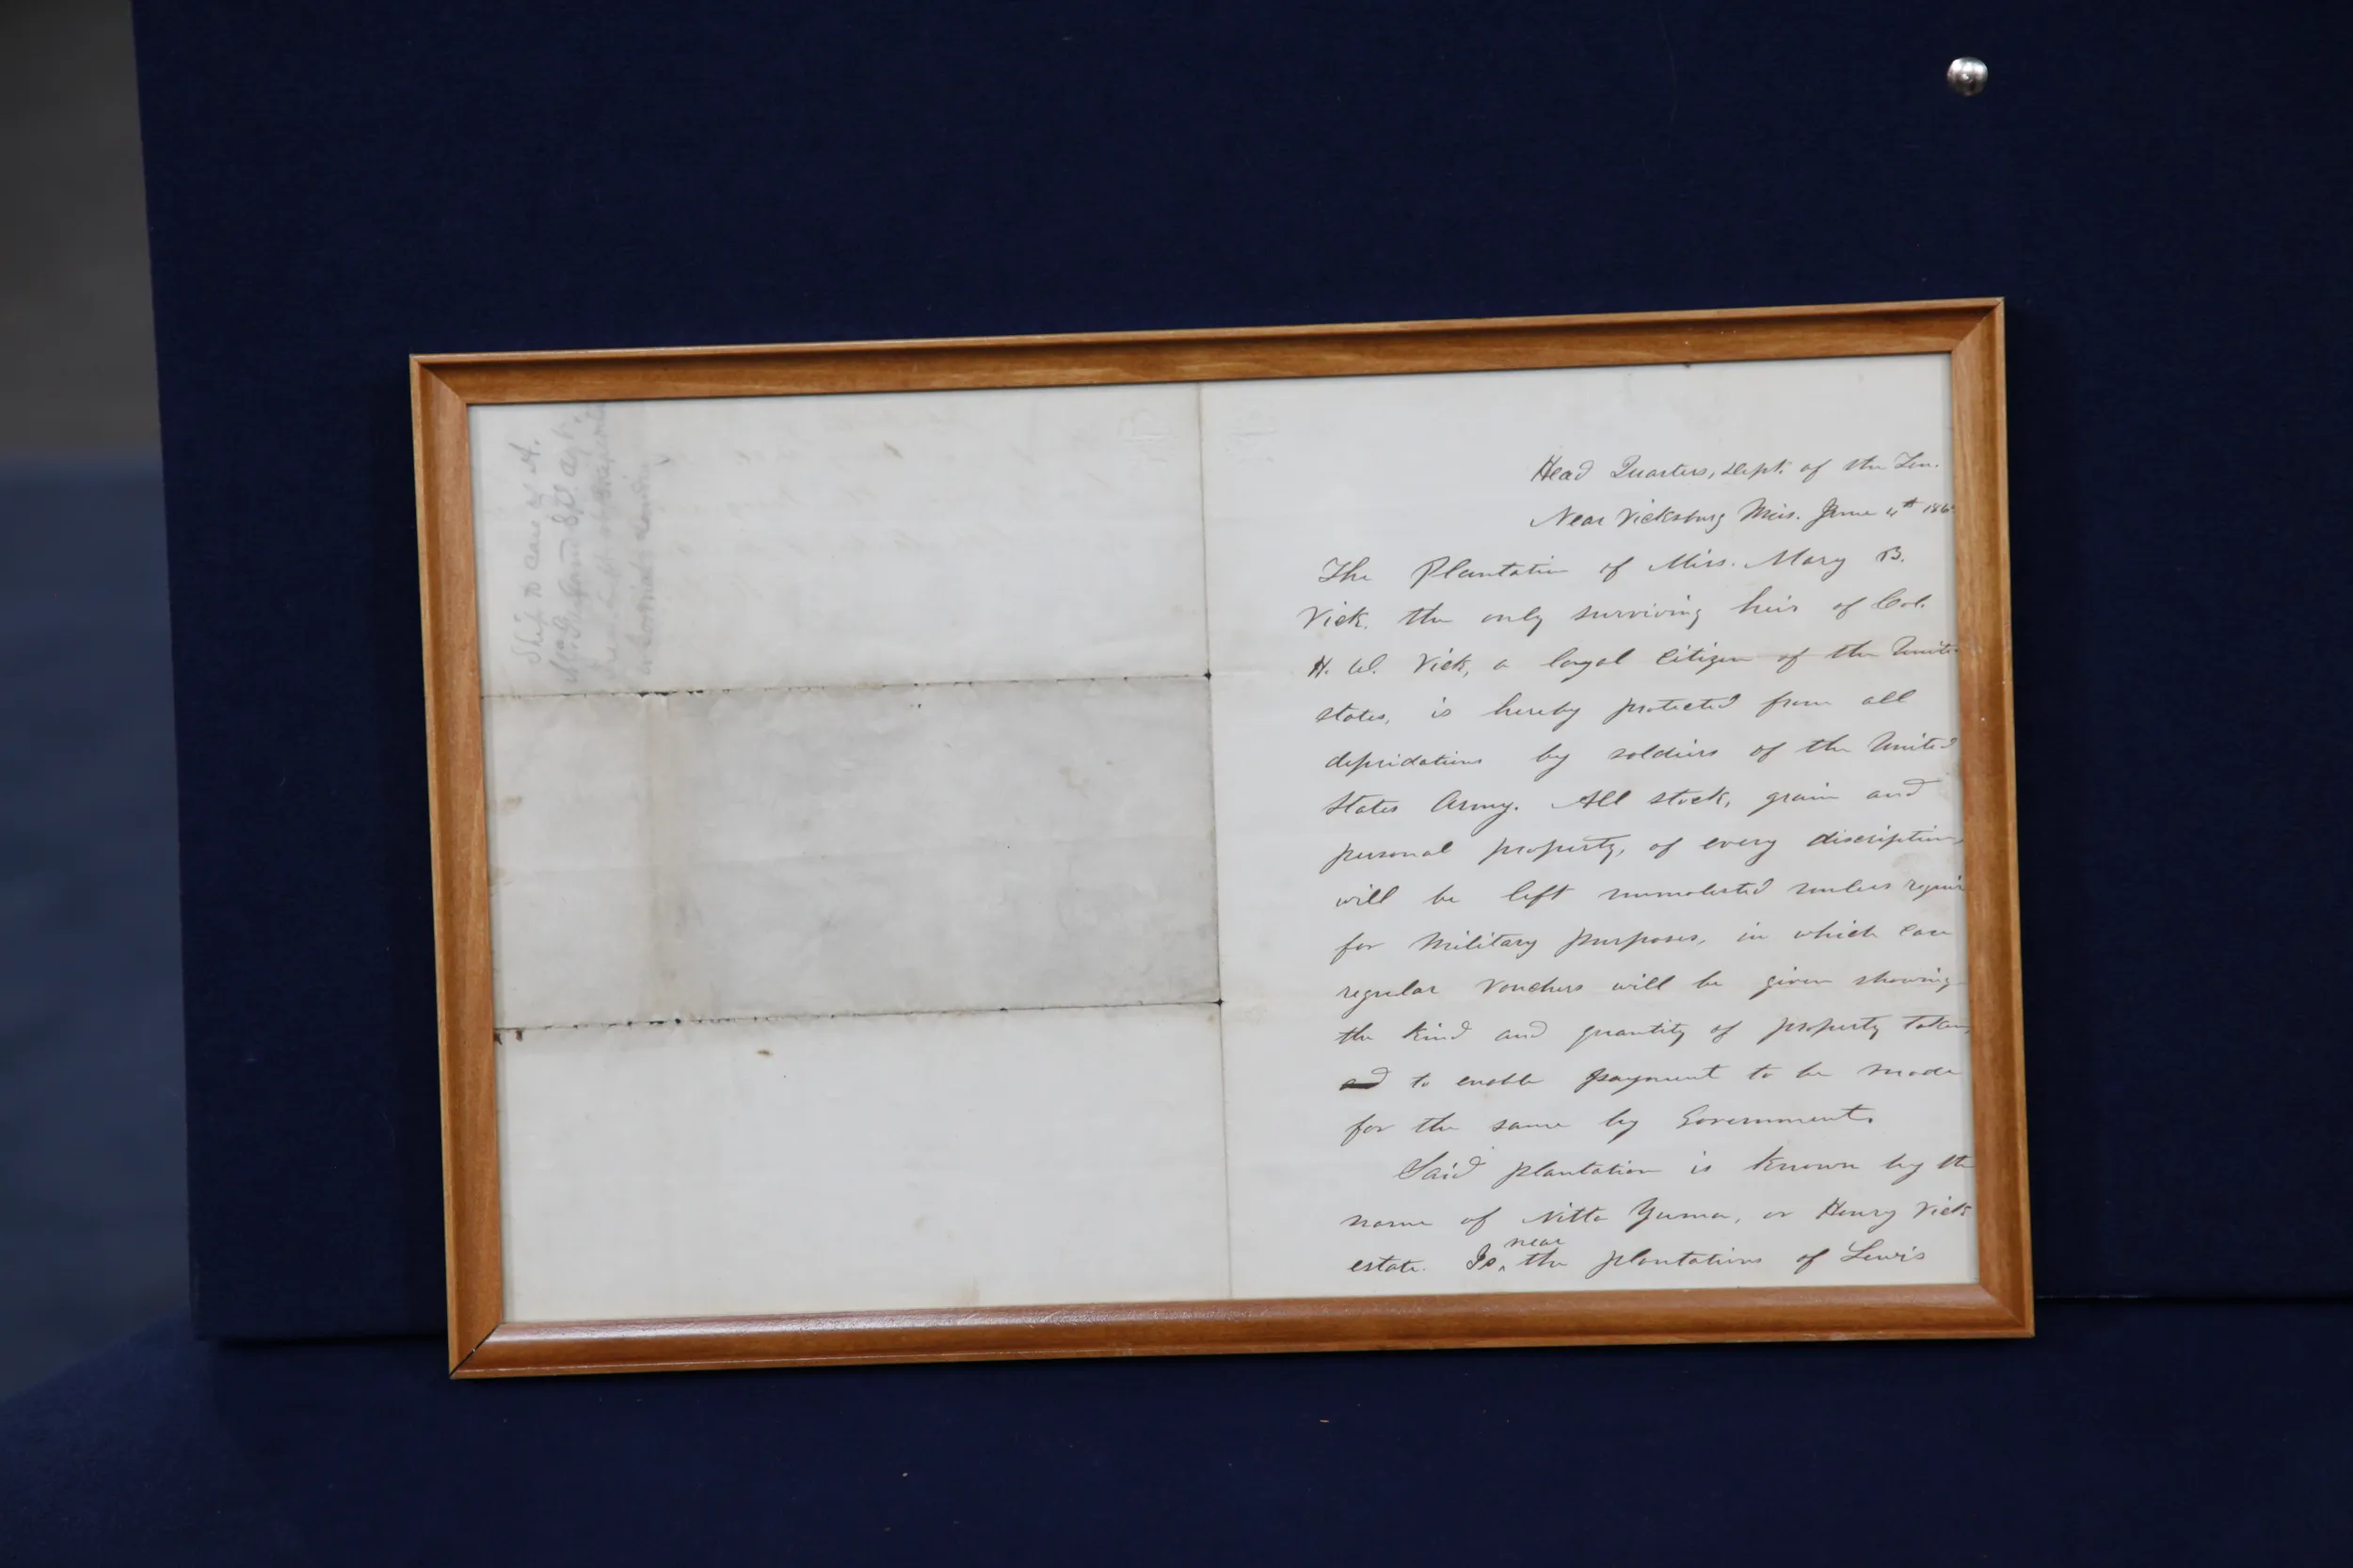 Ship to care of A.
Head Quarters, Dept. of the Ten.
Near Vicksburg Miss. June 4th 186
The Plantation of Miss. Mary B.
Vick. the only surviving heir of Col.
H. W. Vick, a loyal Citizen of the Unite
States, is hereby protected from all
depridations by soldiers of the United
States Army. All stock, grain and
personal property, of every discription,
will be left unmolested unless requir
for Military purposes, in which case
regular vouchers will be given showing
the kind and quantity of property taken,
and to enable payment to be made
for the same by Government.
Said plantation is known by the
name of Nitta Yuma, or Henry Vick
estate. Is near the plantations of Lewis